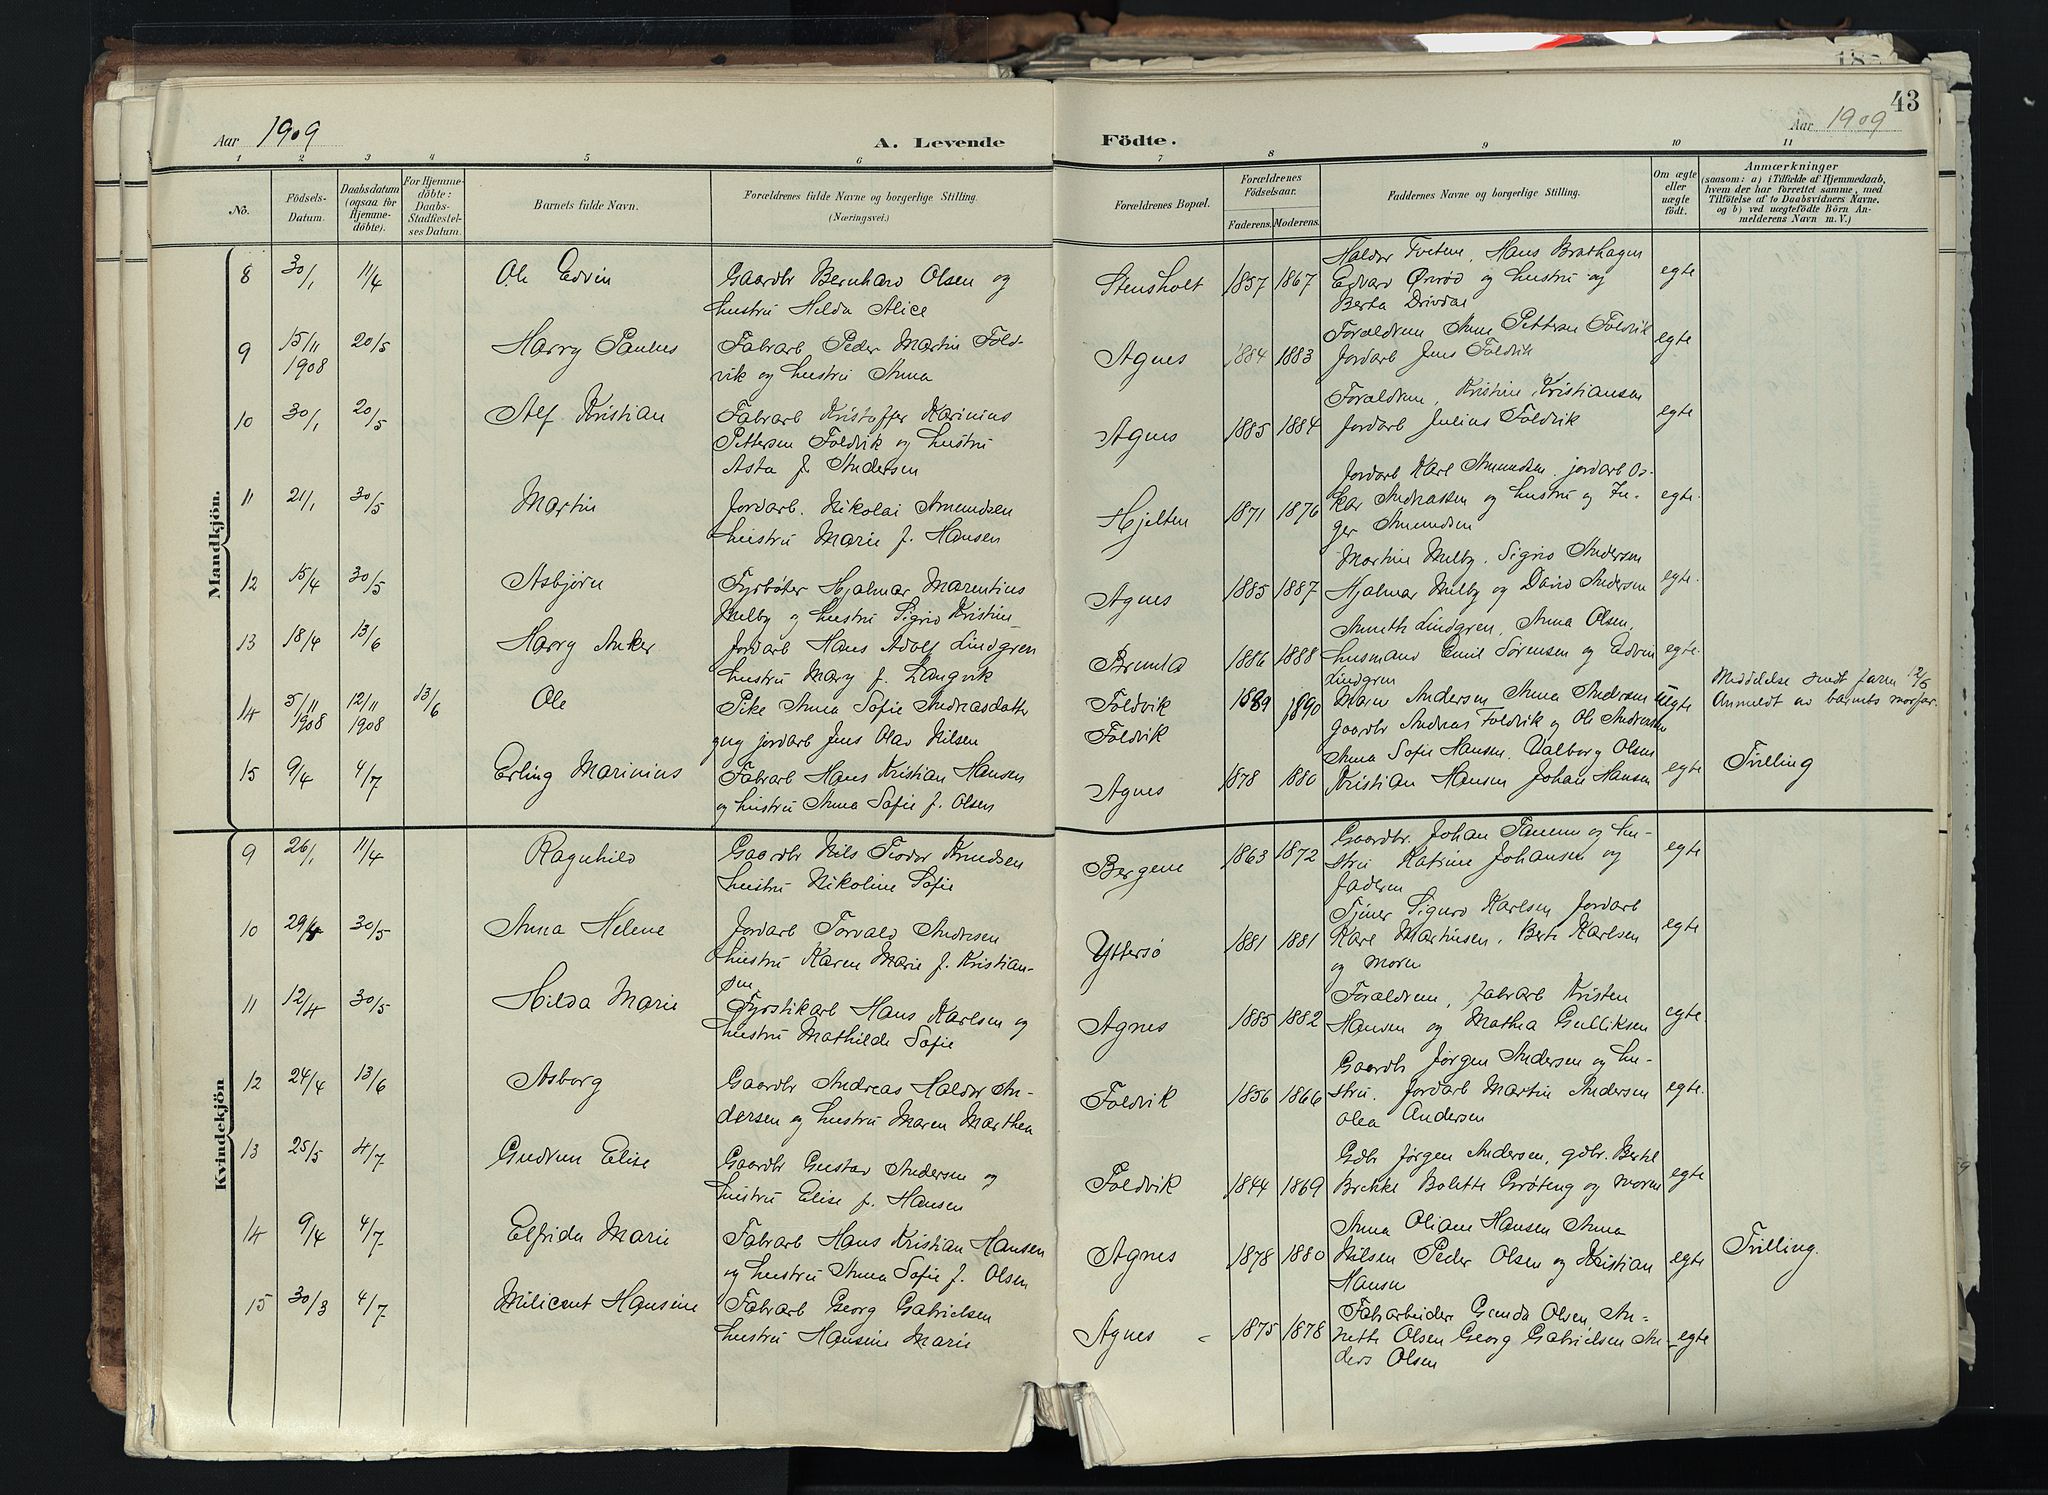 43
Aar 1909
A. Levende Födte.
Aar 1909
1 2 3 4 5 6 7 8 9 10 11
No.
Födsels-Datum.
Daabsdatum (ogsaa for Hjemmedöbte).
For Hjemmedöbte: Daabs-Stadfestelses Datum.
Barnets fulde Navn.
Forældrenes fulde Navne og borgerlige Stilling.
(Næringsvei.)
Forældrenes Bopæl.
Forældrenes Födselsaar.
Faderens. Moderens.
Faddernes Navne og borgerlige Stilling.
Om ægte eller uægte födt.
Anmærkninger
(saasom: a) i Tilfælde af Hjemmedaab,
hvem der har forrettet samme, med
Tilföielse af to Daabsvidners Navne,
og b) ved uægtefödte Börn An-
melderens Navn m. V.)
Mandkjön.
8 30/1 11/4 Ole Edvin
Gaardbr Bernhard Olsen og
hustru Hilda Alice
Stensholt 1857 1867
Haldor Tveten, Hans Brathagen
Edvard Ørerød og hustru og
Berta Drivdal
egte
9 15/11 1908 20/5 Harry Paulus
Fabrarb Peder Martin Fold-
vik og hustru Anna
Agnes 1884 1883
Forældrene Anne Pettersen Foldvik
Jordarb Jens Foldvik
egte
10 30/1 20/5 Alf Kristian
Fabrarb Kristoffer Karinius
Pettersen Foldvik og hustru
Asta f. Andersen
Agnes 1885 1884
Forældrene, Kristine Kristiansen
Jordarb Julius Foldvik
egte
11 21/1 30/5 Martin
Jordarb. Nikolai Amundsen
hustru Marie f. Hansen
Hjelten 1871 1876
Jordarb Karl Amundsen, jordarb Os-
kar Andreassen og hustru og In-
ger Amundsen
egte.
12 15/4 30/5 Asbjørn
Fyrbøter Hjalmar Marentius
Melby og hustru Sigrid Kristine
Agnes 1885 1887
Martine Melby, Sigrid Andersen
Hjalmar Melby og David Andersen
egte.
13 18/4 13/6 Harry Anker
Jordarb Hans Adolf Lindgren
hustru Mary f. Langvik
Brunla 1886 1888
Anneth Lindgren, Anna Olsen,
husmand Emil Sørensen og Edvin
Lindgren
egte.
14 5/11 1908 12/11 1908 13/6 Ole
Pike Anna Sofie Andreasdatter
og ug jordarb Jens Olav Nilsen
Foldvik
Foldvik
1889 1890
Maren Andersen Anna Andersen
gaardbr Andreas Foldvik og Ole Andersen
uegte
Meddelse sendt farn 12/5
Anmeldt av barnets morfar.
15 9/4 4/7 Erling Marinius
Fabrarb Hans Kristian Hansen
og hustru Anna Sofie f. Olsen
Agnes 1878 1880
Anna Sofie Hansen, Valborg Olsen
Kristian Hansen Johan Hansen
egte
Tvilling
Kvindekjön
9 26/1 11/4 Ragnhild
Gaardbr Nils Teodor Knudsen
hustru Nikoline Sofie
Bergene 1863 1872
Gaardbr. Johan Tanum og hu-
stru Katrine Johansen og
faderen
egte
10 29/4 30/5 Anna Helene
Jordarb Torvald Andresen
hustru Karen Marie f. Kristian-
sen
Yttersø 1881 1881
Tjener Sigurd Karlsen Jordarb
Karl Martinsen, Berte Karlsen
og moren
egte
11 12/4 30/5 Hilda Marie
Fyrstikarb Hans Karlsen og
hustru Mathilde Sofie
Agnes 1885 1882
Forældrene, fabrarb Kristen
Hansen og Mathea Gulliksen
egte
12 24/4 13/6 Asborg
Gaardbr Andreas Haldor An-
dersen og hustru Maren Marthea
Foldvik 1856 1866
Gaardbr Jørgen Andersen og hu-
stru. Jordarb Martin Andersen
Olea Andersen
egte.
13 25/5 4/7 Gudrun Elise
Gaardbr Gustav Andersen og
hustru Elise f. Hansen
Foldvik 1844 1869
Gdbr Jørgen Andersen, gdbr. Bertel
Brekke Bolette Grøteng og moren
egte
14 9/4 4/7 Elfrida Marie
Fabrarb Hans Kristian Hansen
og hustru Anna Sofie f. Olsen
Agnes 1878 1880
Anna Oliane Hansen Anna
Nilsen Peder Olsen og Kristian
Hansen
egte
Tvilling.
15 30/3 4/7 Milicent Hansine
Fabrarb Georg Gabrielsen
hustru Hansine Marie
Agnes 1875 1878
Fabrarbeider Gunda Olsen An-
nette Olsen Georg Gabrielsen An-
ders Olsen
egte